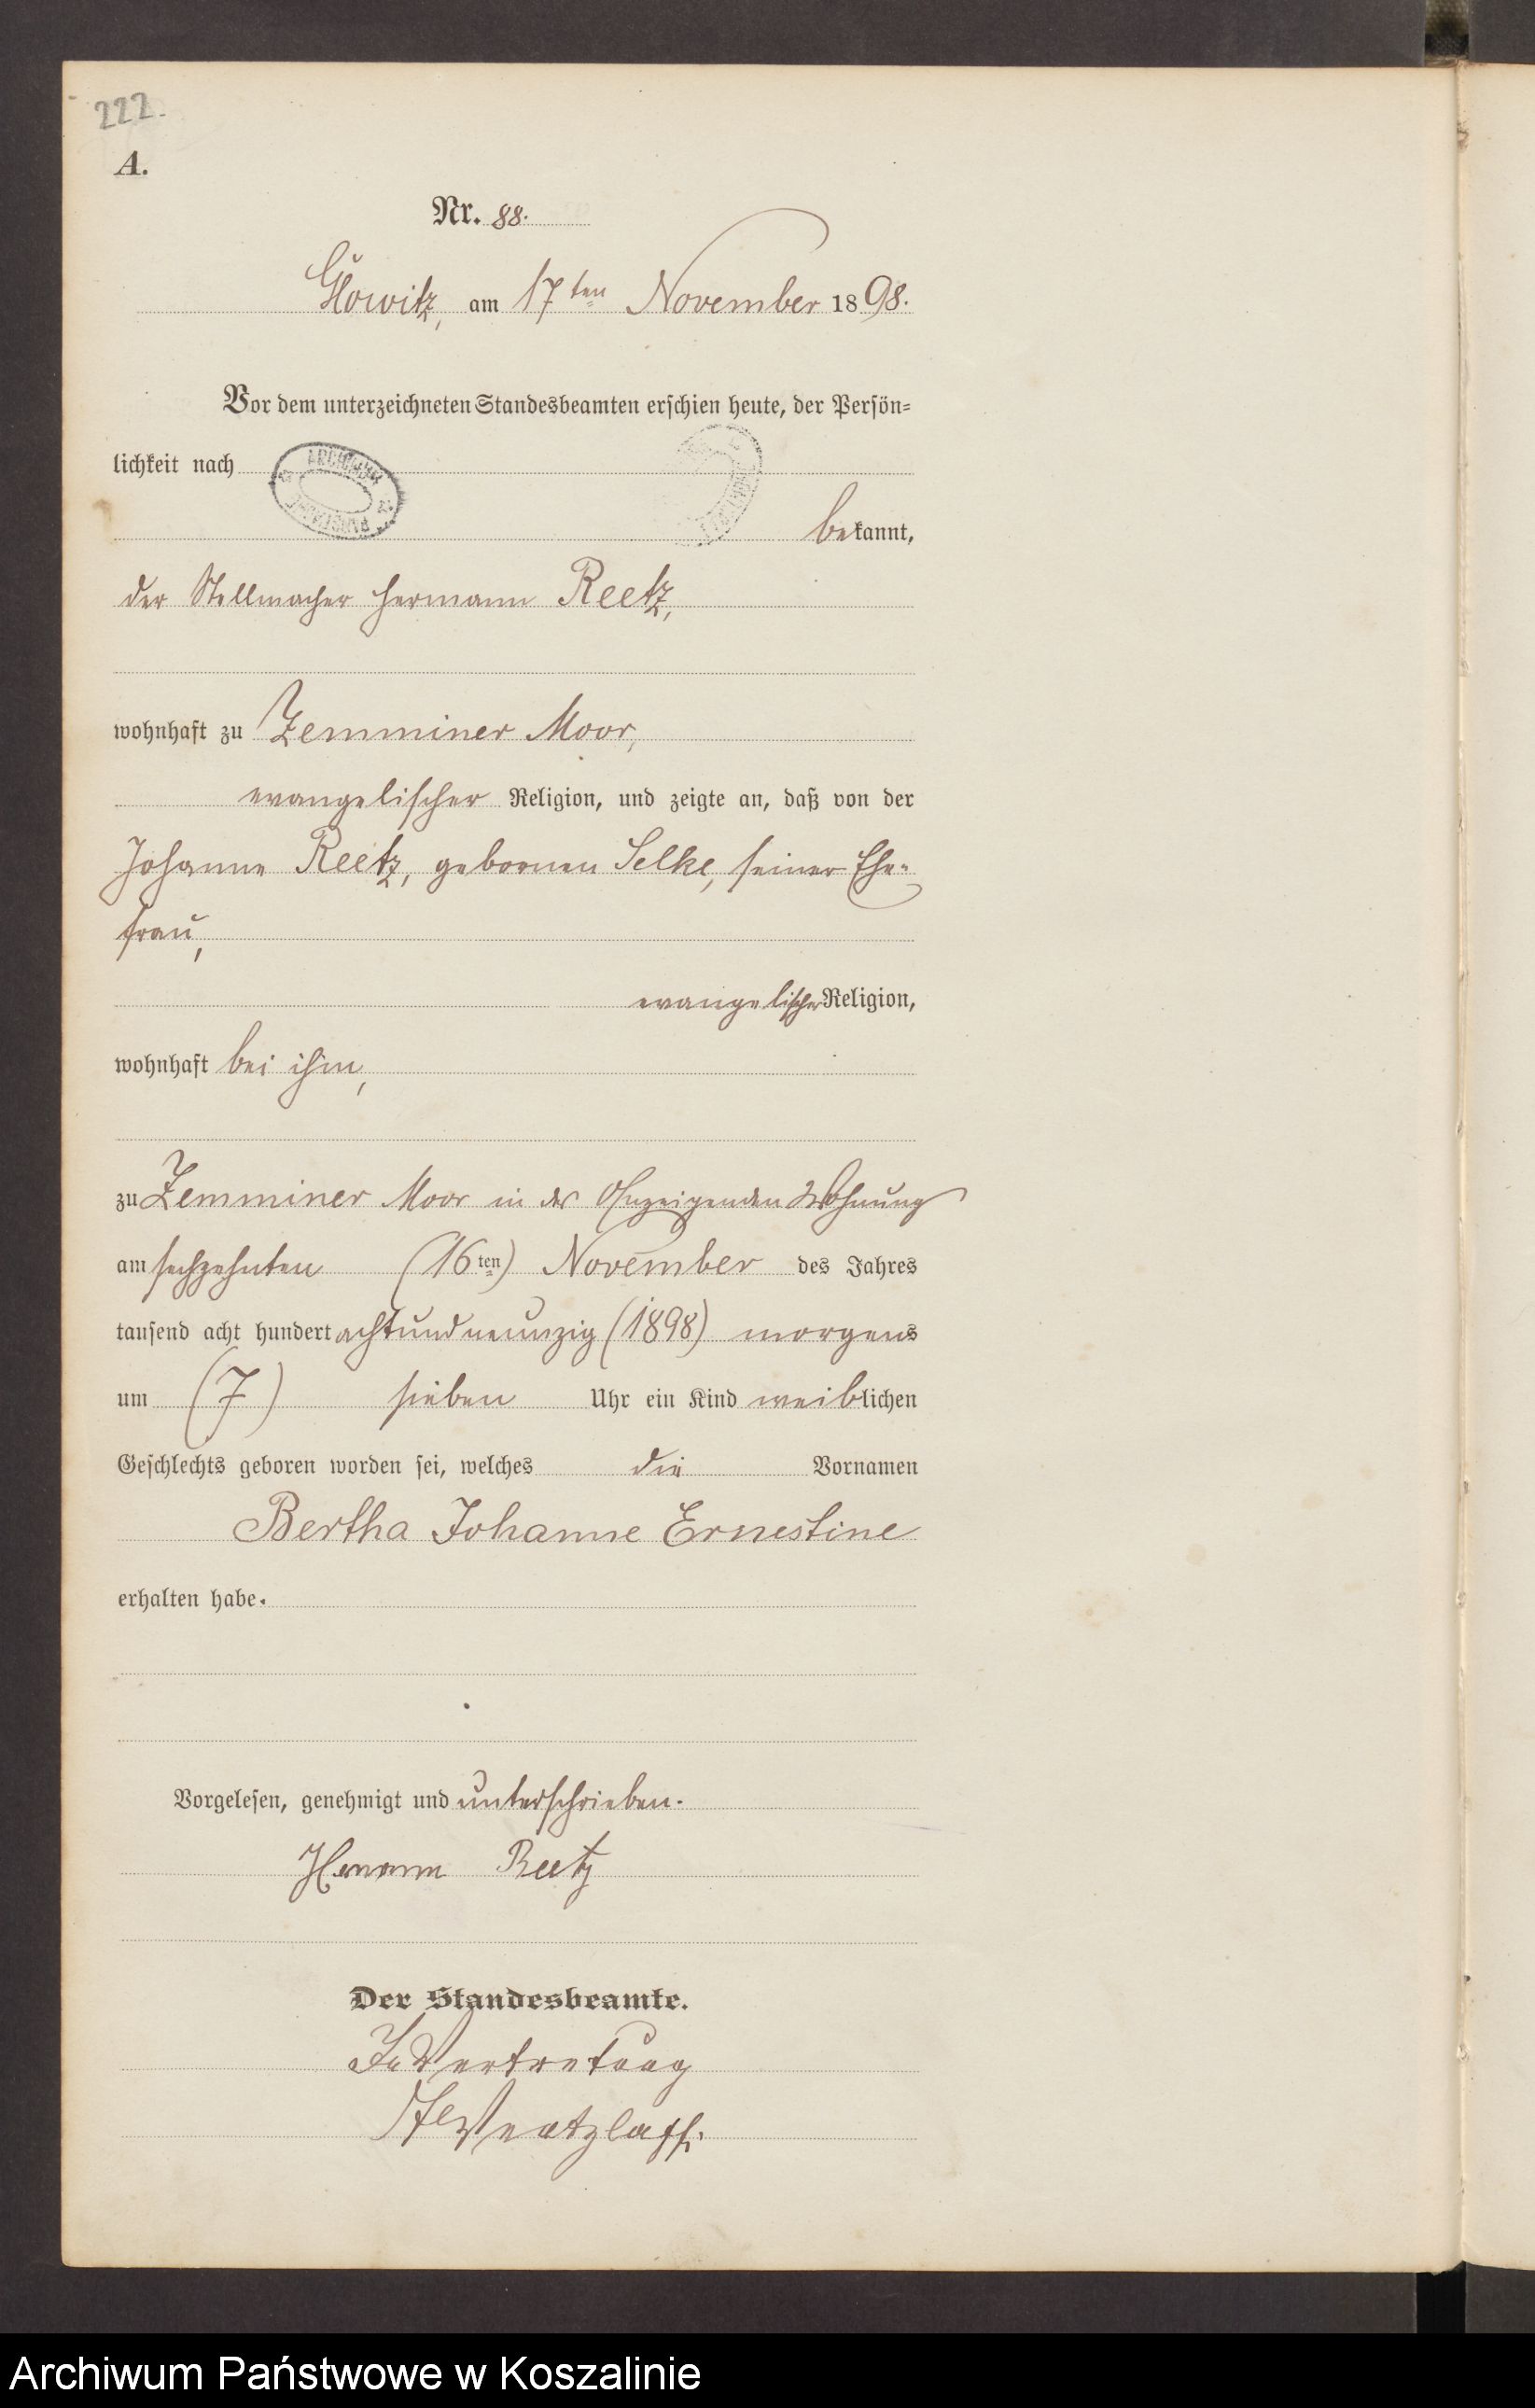 222.
A.
Nr. 88.
Glowitz, am 17ten November 1898.
Vor dem unterzeichneten Standesbeamten erschien heute, der Persön=
lichkeit nach
ARCHIWUM
bekannt,
der Stellmacher Hermann Reetz,
wohnhaft zu Zemminer Moor,
evangelischer Religion, und zeigte an, daß von der
Johanne Reetz, gebornen Selke, seiner Ehe-
frau,
evangelischer Religion,
wohnhaft bei ihm,
zu Zemminer Moor in des Anzeigenden Wohnung
am sechzehnten (16ten) November des Jahres
tausend acht hundert achtundneunzig (1898) morgens
um (7) sieben Uhr ein Kind weiblichen
Geschlechts geboren worden sei, welches die Vornamen
Bertha Johanne Ernestine
erhalten habe.
Vorgelesen, genehmigt und unterschrieben.
Hermann Reetz
Der Standesbeamte.
In Vertretung
Archiwum Państwowe w Koszalinie